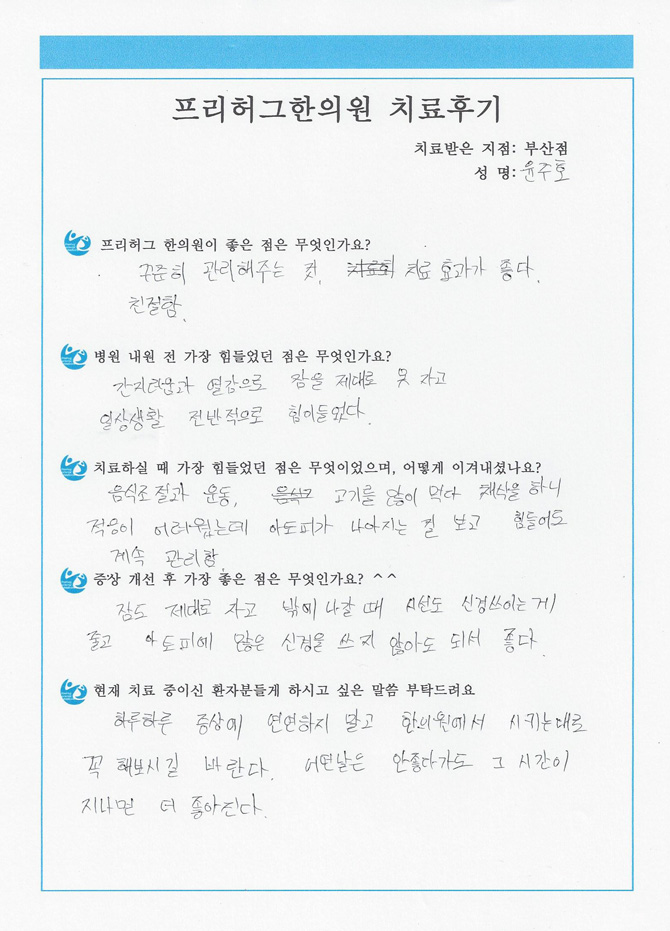 프리허그한의원 치료후기
치료받은 지점: 부산점
성 명: 윤주호
프리허그 한의원이 좋은 점은 무엇인가요?
꾸준히 관리해주는 것, 치료 효과가 좋다.
친절함.
병원 내원 전 가장 힘들었던 점은 무엇인가요?
간지러움과 열감으로 잠을 제대로 못 자고
일상생활 전반적으로 힘이들었다.
치료하실 때 가장 힘들었던 점은 무엇이었으며, 어떻게 이겨내셨나요?
음식조절과 운동, 고기를 많이 먹다 채식을 하니
적응이 어려웠는데 아토피가 나아지는 걸 보고 힘들어도
계속 관리함.
증상 개선 후 가장 좋은 점은 무엇인가요? ^^
잠도 제대로 자고 밖에 나갈 때 시선도 신경쓰이는게
줄고 아토피에 많은 신경을 쓰지 않아도 되서 좋다.
현재 치료 중이신 환자분들게 하시고 싶은 말씀 부탁드려요
하루하루 증상에 연연하지 말고 한의원에서 시키는대로
꼭 해보시길 바란다. 어떤날은 안좋다가도 그 시간이
지나면 더 좋아진다.